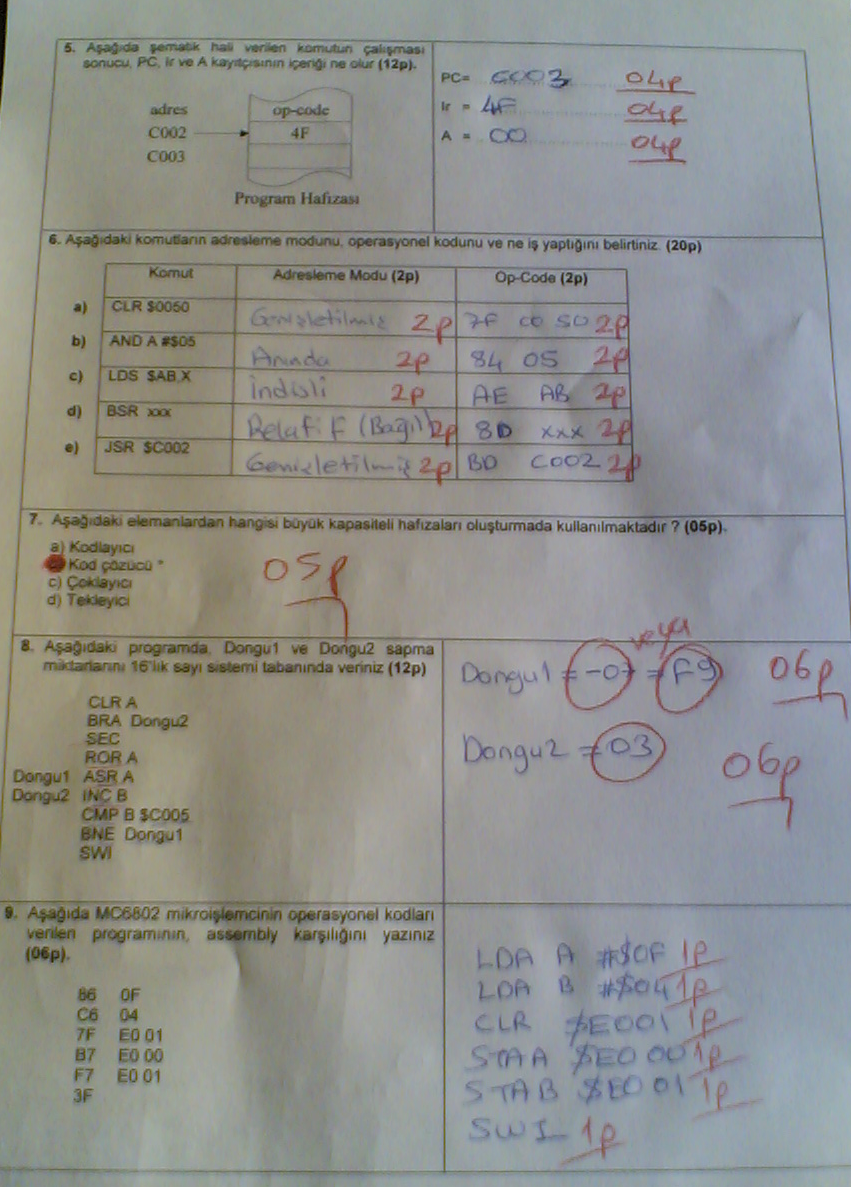 5. Aşağıda şematik hali verilen komutun çalışması
sonucu, PC, Ir ve A kayıtçısının içeriği ne olur (12p).
adres op-code
C002 4F
C003
Program Hafızası
PC= C003 04p
Ir = 4F 04p
A = 00 04p
6. Aşağıdaki komutların adresleme modunu, operasyonel kodunu ve ne iş yaptığını belirtiniz. (20p)
Komut Adresleme Modu (2p) Op-Code (2p)
a) CLR $0050 Genişletilmiş 2p 7F 00 50 2p
b) AND A #$05 Anında 2p 84 05 2p
c) LDS $AB,X İndisli 2p AE AB 2p
d) BSR xxx Relatif (Bağıl) 2p 8D xxx 2p
e) JSR $C002 Genişletilmiş 2p BD C002 2p
7. Aşağıdaki elemanlardan hangisi büyük kapasiteli hafızaları oluşturmada kullanılmaktadır ? (05p).
a) Kodlayıcı
Kod çözücü *
c) Çoklayıcı
d) Tekleyici
05p
8. Aşağıdaki programda, Dongu1 ve Dongu2 sapma
miktarlarını 16'lık sayı sistemi tabanında veriniz (12p)
CLR A
BRA Dongu2
SEC
ROR A
Dongu1 ASR A
Dongu2 INC B
CMP B $C005
BNE Dongu1
SWI
veya
Dongu1 = -07 = F9 06p
Dongu2 = 03 06p
9. Aşağıda MC6802 mikroişlemcinin operasyonel kodları
verilen programının, assembly karşılığını yazınız
(06p).
86 0F
C6 04
7F E0 01
B7 E0 00
F7 E0 01
3F
LDA A #$0F 1p
LDA B #$04 1p
CLR $E001 1p
STA A $E0 00 1p
STA B $E0 01 1p
SWI 1p